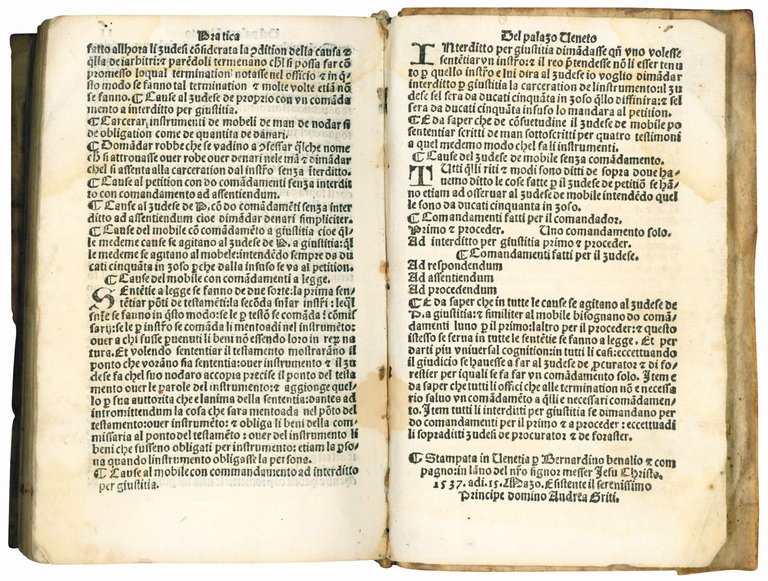 Pratica
fatto allhora li ʒudesi cõsiderata la ɔdition della causa ⁊
q̃lla de iarbitri: ⁊ parẽdoli termenano ch̃l si possa far cõ
promesso loqual termination notasse nel officio ⁊ in q̃
sto modo se fanno tal termination ⁊ molte volte etiã nõ
se fanno. ¶ Cause al ʒudese de proprio con vn comãda
mento a interdito per giustitia.
¶ Carcerar, instrumenti de mobeli de man de nodar si
de obligation come de quantita de danari.
¶ Domãdar robbe che se vadino a ɔfessar q̃lche nome
ch̃ si attrouasse ouer robe ouer denari nele mã ⁊ dimãdar
chel si assenta alla carceration dal instro senʒa ĩterditto.
¶ Cause al petition con do comãdamenti senʒa interdi
to con comandamento ad assentiendum.
¶ Cause al ʒudese de P. cõ do comãdamẽti senʒa inter
ditto ad assentiendum cioe dimãdar denari simpliciter.
¶ Cause del mobile cõ comãdamẽto a giustitia cioe q̃l
le medeme cause se agitano al ʒudese de P. a giustitia: q̃l
le medeme se agitano al mobele: intendẽdo sempre da du
cati cinquãta in ʒoso ꝑche dalla in suso se va al petition.
¶ Cause del mobile con comãdamenti a legge.
SEntẽtie a legge se fanno de due sorte: la prima sen
tẽtiar põti de testamẽti: la secõda sñtiar instri: leq̃l
sñtie se fanno in q̃sto modo: se le ꝑ testõ se comãda i cõmis
sarij: se le ꝑ instro se comãda li mentoadi nel instrumẽto:
ouer a chi fusse ꝑuenuti li beni nõ essendo loro in reꝝ na
tura. Et volendo sententiar il testamento mostrarãno il
ponto che voräno sia sententiа: ouer instrumento ⁊ il ʒu
dese fa chel suo nodaro accopia precise il ponto del testa
mento ouer le ꝑarole del instrumento: ⁊ aggionge quel
lo ꝑ sua auttorita che lanima della sententia: dantes ad
intromittendum la cosa che sara mentoada nel põto del
testamento: ouer instrumẽto: ⁊ obliga li beni della com
missaria al ponto del testamẽto: ouer del instrumento li
beni che fusseno obligati per instrumento: etiam la ꝑso
na quando linstrumento obligasse la persona.
¶ Cause al mobile con commandamento ad interditto
per giustitia.
Del palaʒo Veneto
INterditto per giustitia dimãdasse qñ vno volesse
sentẽtiar vn instro: ⁊ il reo ꝑtendesse nõ li esser tenu
to ꝑ quello instro ⁊ lui dira al ʒudese io voglio dimãdar
interditto ꝑ giustitia la carceration de linstrumento: il ʒu
dese sel sera da ducati cinquãta in ʒoso q̃llo diffinira: ⁊ sel
sera da ducati cinquãta in suso lo mandara al petition.
¶ E da saper che de cõsuetudine il ʒudese de mobile po
sententiar scritti de man sottoscritti per quatro testimoni
a quel medemo modo chel fa li instrumenti.
¶ Cause del ʒudese de mobile senʒa comãdamento.
TUtti q̃lli riti ⁊ modi sono ditti de sopra doue ha
uemo ditto le cose fatte ꝑ il ʒudese de petitiõ se hã
no etiam ad osseruar al ʒudese de mobile intendẽdo quel
le sono da ducati cinquanta in ʒoso.
¶ Comandamenti fatti per il comandador.
Primo ⁊ proceder. Uno comandamento solo.
Ad interditto per giustitia primo ⁊ proceder.
¶ Comandamenti fatti per il ʒudese.
Ad respondendum
Ad assentiendum
Ad procedendum
¶ E da saper che in tutte le cause se agitano al ʒudese de
P. a giustitia: ⁊ similiter al mobile bisognano do comã
damenti luno ꝑ il primo: laltro per il proceder: ⁊ questo
istesso se serua in tutte le sentẽtie se fanno a legge. Et per
darti piu vniuersal cognition: in tutti li casi: eccettuando
il giudicio se hauesse a far al ʒudese de ꝓcurator ⁊ di fo
restier per iquali se fa sar vn comãdamento solo. Item e
da saper che tutti li offici che alle termination nõ e necessa
rio saluo vn comãdamẽto a q̃lli e necessari comãdamen
to. Item tutti li interditti per giustitia se dimandano per
do comandamenti per il primo ⁊ a proceder: eccettuadi
li sopraditti ʒudesi de procurator ⁊ de foraster.
¶ Stampata in Venetia ꝑ Bernardino benalio ⁊ com
pagno: in lãno del nr̃o signor messer Jesu Christo.
1537. adi. 15. Maʒo. Existente il serenissimo
Principe domino Andrea Griti.